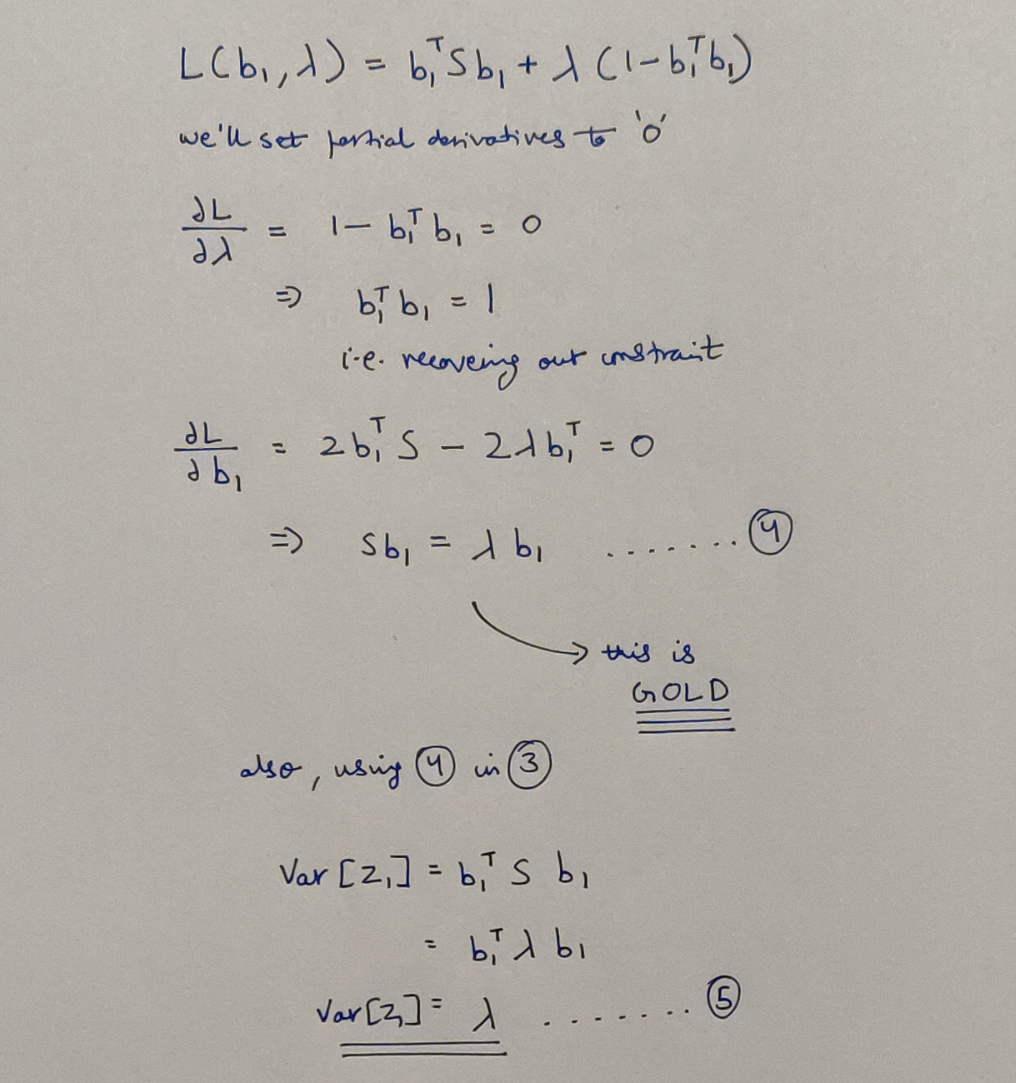 L(b₁, λ) = b₁ᵀSb₁ + λ (1-b₁ᵀb₁)
we'll set partial derivatives to 'o'
∂L/∂λ = 1- b₁ᵀ b₁ = 0
⇒ b₁ᵀ b₁ = 1
i.e. recoveing out constrait
∂L/∂b₁ = 2b₁ᵀ S - 2λb₁ᵀ = 0
⇒ Sb₁ = λ b₁ ....... ④
→ this is
GOLD
also, using ④ in ③
Var [z₁] = b₁ᵀ S b₁
= b₁ᵀ λ b₁
Var[z₁] = λ ....... ⑤